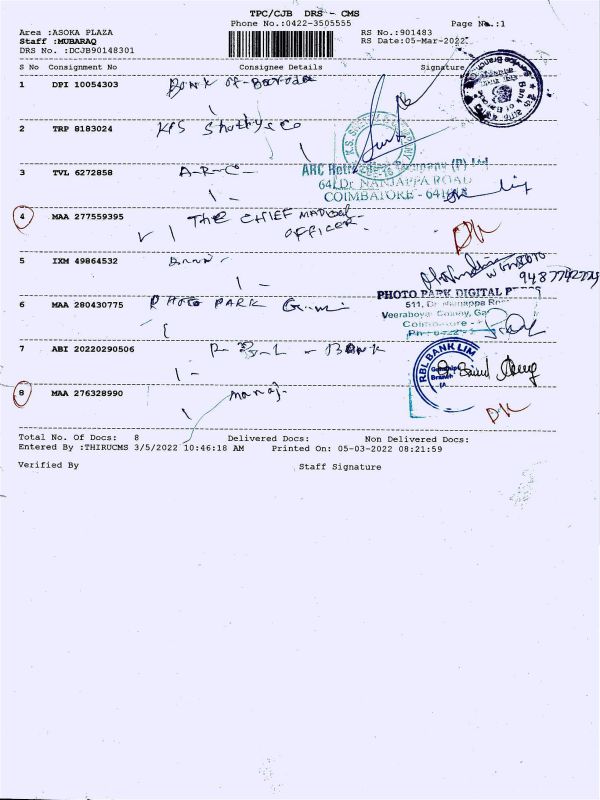 TPC/CJB DRS - CMS
Phone No.:0422-3505555 Page No.:1
Area :ASOKA PLAZA RS No.:901483
Staff :MUBARAQ RS Date:05-Mar-2022
DRS No. :DCJB90148301
S No Consignment No Consignee Details Signature
1 DPI 10054303 Bank of Baroda
2 TRP 8183024 KPS Shettys Co
3 TVL 6272858 A-R-C-
ARC Company (P) Ltd
64, Dr. NANJAPPA ROAD
COIMBATORE - 641
4 MAA 277559395 THE CHIEF
OFFICER
5 IXM 49864532
6 MAA 280430775 PHOTO PARK
PHOTO PARK DIGITAL P
511, Dr. Nanjappa
Colony,
Coimbatore -
7 ABI 20220290506 R B L - Bank
RBL BANK LIM
Branch
8 MAA 276328990 manoj
Total No. Of Docs: 8 Delivered Docs: Non Delivered Docs:
Entered By :THIRUCMS 3/5/2022 10:46:18 AM Printed On: 05-03-2022 08:21:59
Verified By Staff Signature